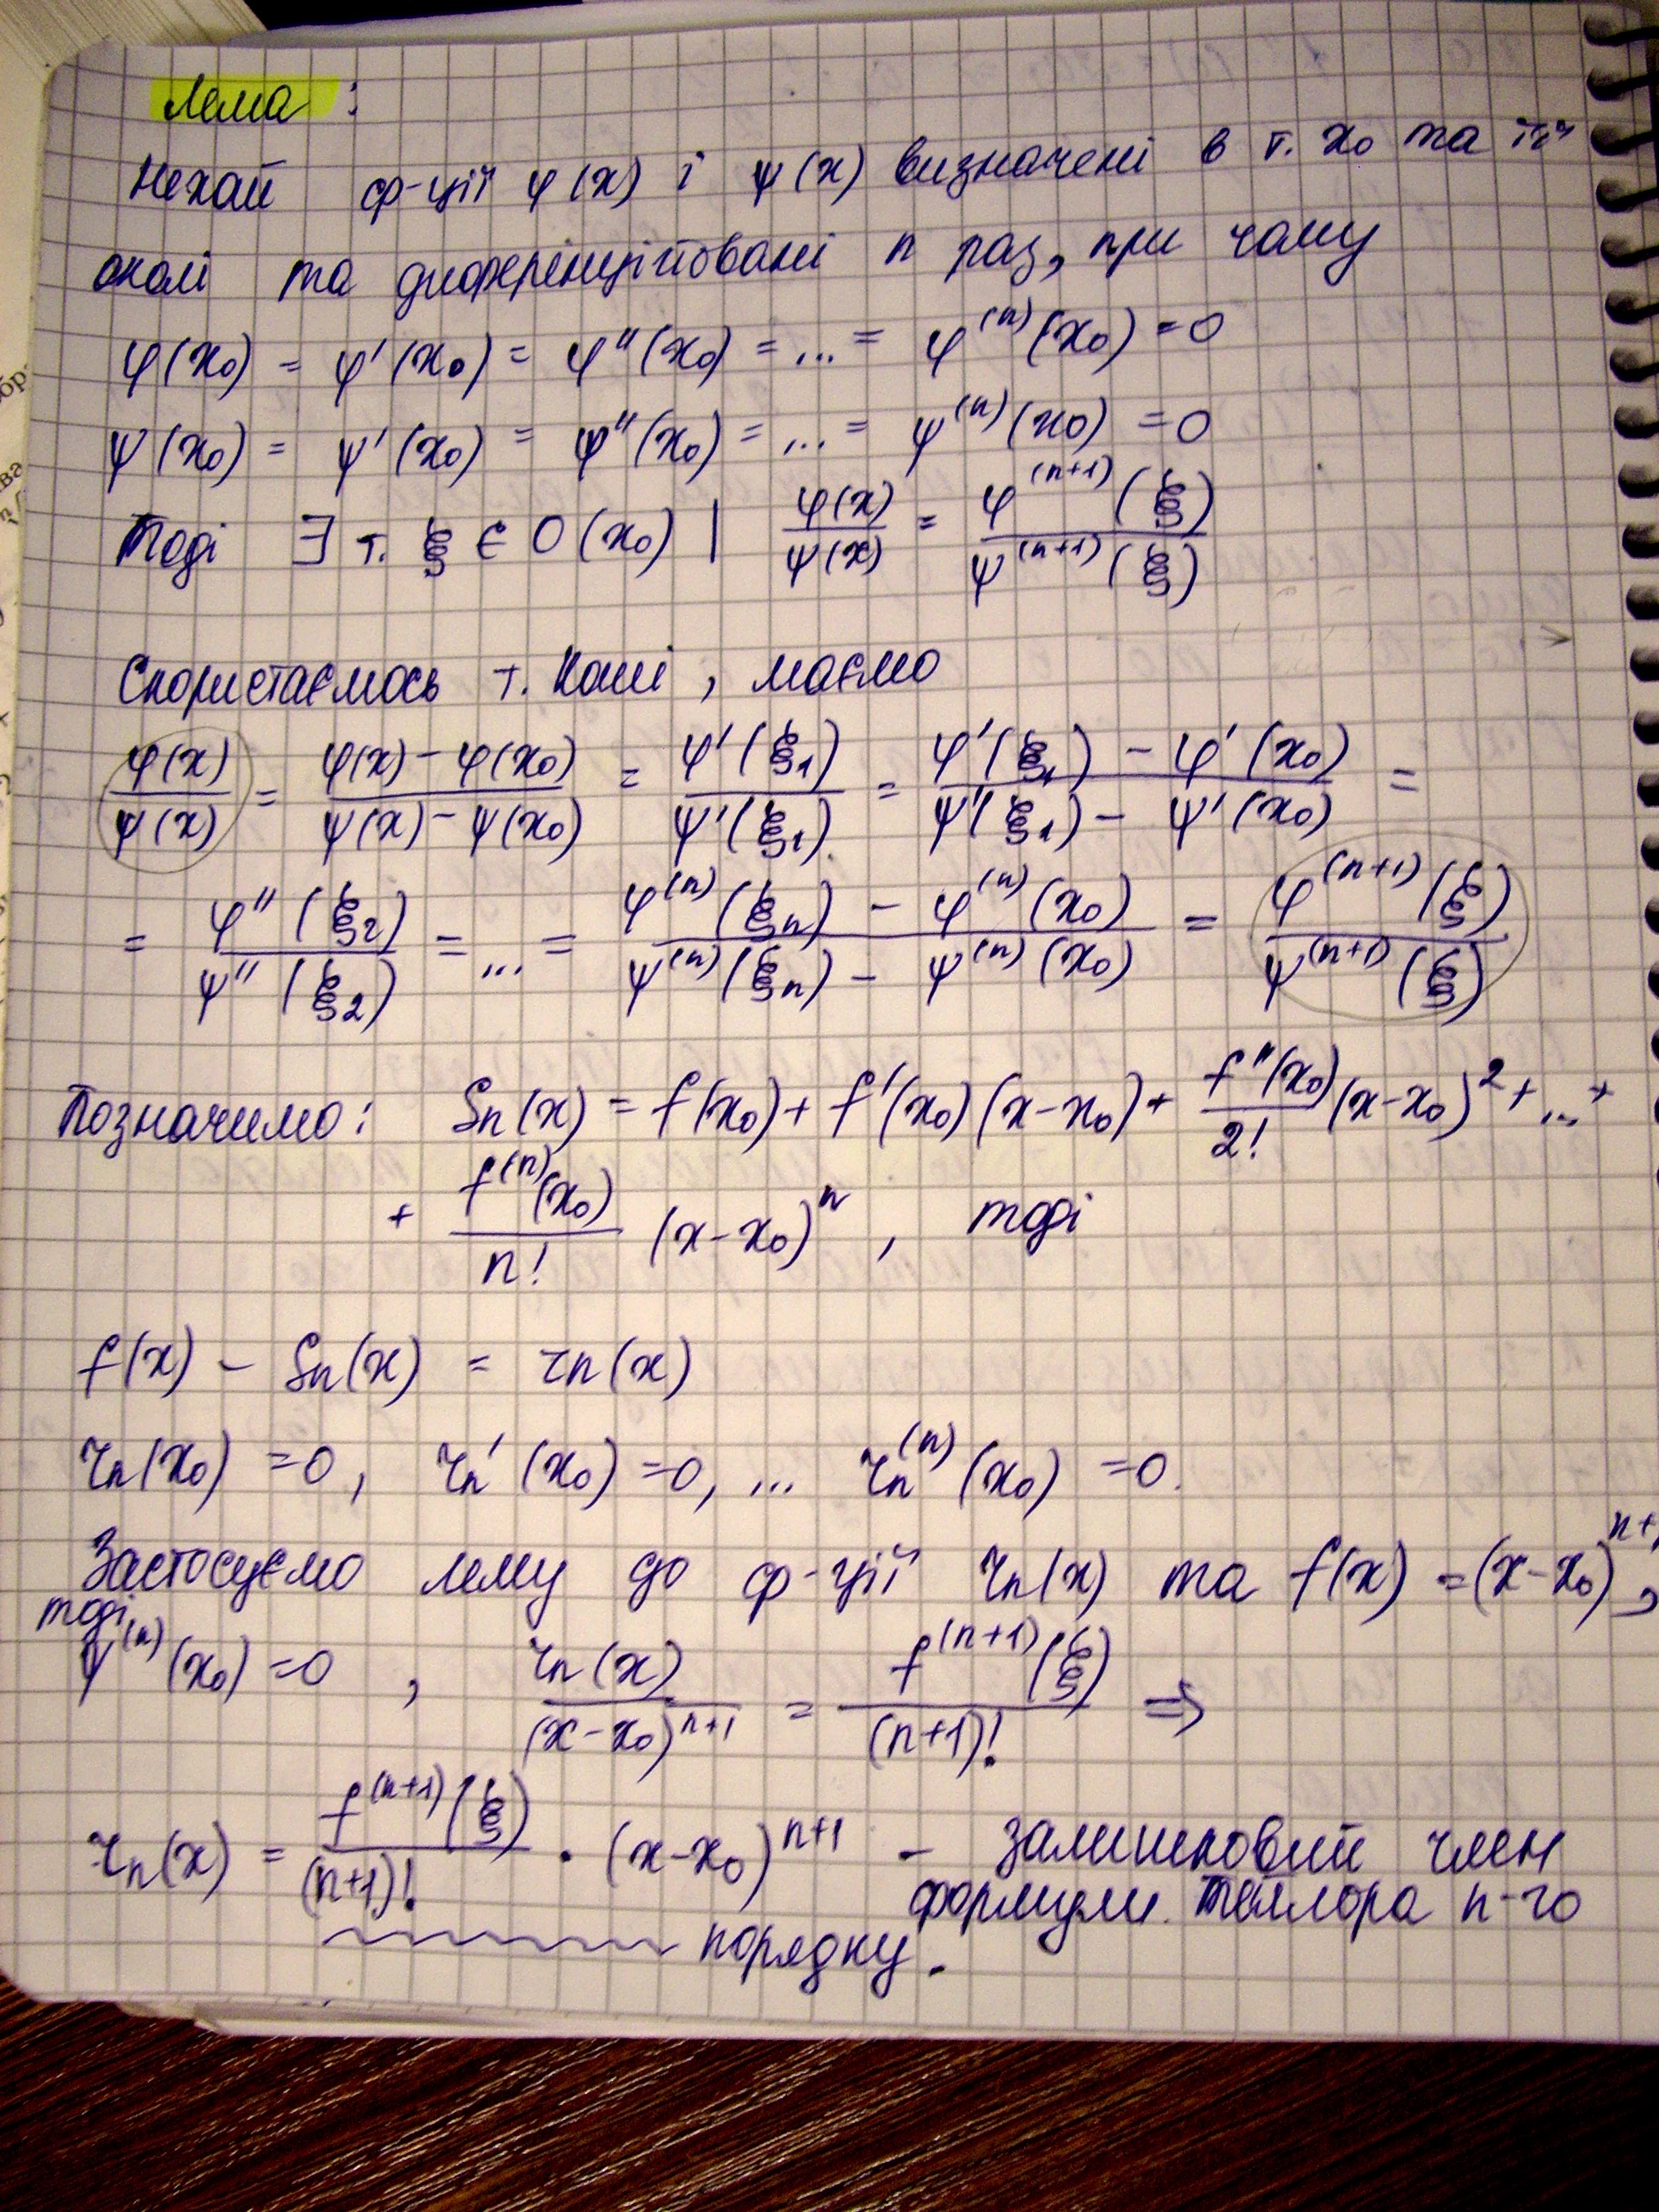 Лема :
Нехай ф-ції φ(x) і ψ(x) визначені в т. x₀ та її
околі та диференційовані n раз, при чому
φ(x₀) = φ'(x₀) = φ''(x₀) = ... = φ⁽ⁿ⁾(x₀) = 0
ψ(x₀) = ψ'(x₀) = ψ''(x₀) = ... = ψ⁽ⁿ⁾(x₀) = 0
Тоді ∃ т. ξ ∈ O(x₀) | φ(x)/ψ(x) = φ⁽ⁿ⁺¹⁾(ξ)/ψ⁽ⁿ⁺¹⁾(ξ)
Скористаємось т. Коші, маємо
φ(x)/ψ(x) = (φ(x) - φ(x₀))/(ψ(x) - ψ(x₀)) = φ'(ξ₁)/ψ'(ξ₁) = (φ'(ξ₁) - φ'(x₀))/(ψ'(ξ₁) - ψ'(x₀)) =
= φ''(ξ₂)/ψ''(ξ₂) = ... = (φ⁽ⁿ⁾(ξₙ) - φ⁽ⁿ⁾(x₀))/(ψ⁽ⁿ⁾(ξₙ) - ψ⁽ⁿ⁾(x₀)) = φ⁽ⁿ⁺¹⁾(ξ)/ψ⁽ⁿ⁺¹⁾(ξ)
Позначимо: Sₙ(x) = f(x₀) + f'(x₀)(x-x₀) + f''(x₀)/2! (x-x₀)² + ... +
+ f⁽ⁿ⁾(x₀)/n! (x-x₀)ⁿ , тоді
f(x) - Sₙ(x) = rₙ(x)
rₙ(x₀) = 0, rₙ'(x₀) = 0, ... rₙ⁽ⁿ⁾(x₀) = 0.
Застосуємо лему до ф-ції rₙ(x) та f(x) = (x-x₀)ⁿ⁺¹,
тоді
ψ⁽ⁿ⁾(x₀) = 0 , rₙ(x)/(x-x₀)ⁿ⁺¹ = f⁽ⁿ⁺¹⁾(ξ)/(n+1)! ⇒
rₙ(x) = f⁽ⁿ⁺¹⁾(ξ)/(n+1)! · (x-x₀)ⁿ⁺¹ - залишковий член
формули Тейлора n-го
порядку.